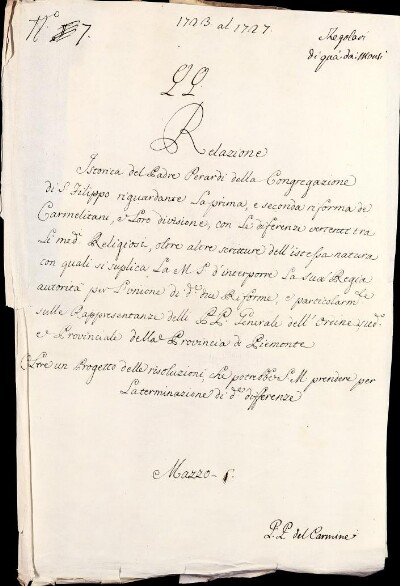 N.º 7.
1723. al 1727.
Regolari
di quà da' Monti
PP.
Relazione
Istorica del Padre Perardi della Congregazione
di S. Filippo riguardante la prima, e seconda riforma de
Carmelitani, e loro divisione, con le diferenze vertenti tra
li med.i Religiosi, oltre altre scritture dell'istessa natura
con quali si suplica La M. S. d'interporre la sua Regia
autorità per l'unione di d.e due Reforme, e particolarm.te
sulle Rappresentanze delli PP. Generale dell'Ordine sud.o
e Provinciale della Provincia di Piemonte
Oltre un Progetto delle risoluzioni, che potrebbe S. M. prendere per
la terminazione di d.e differenze
Mazzo
P.P. del Carmine